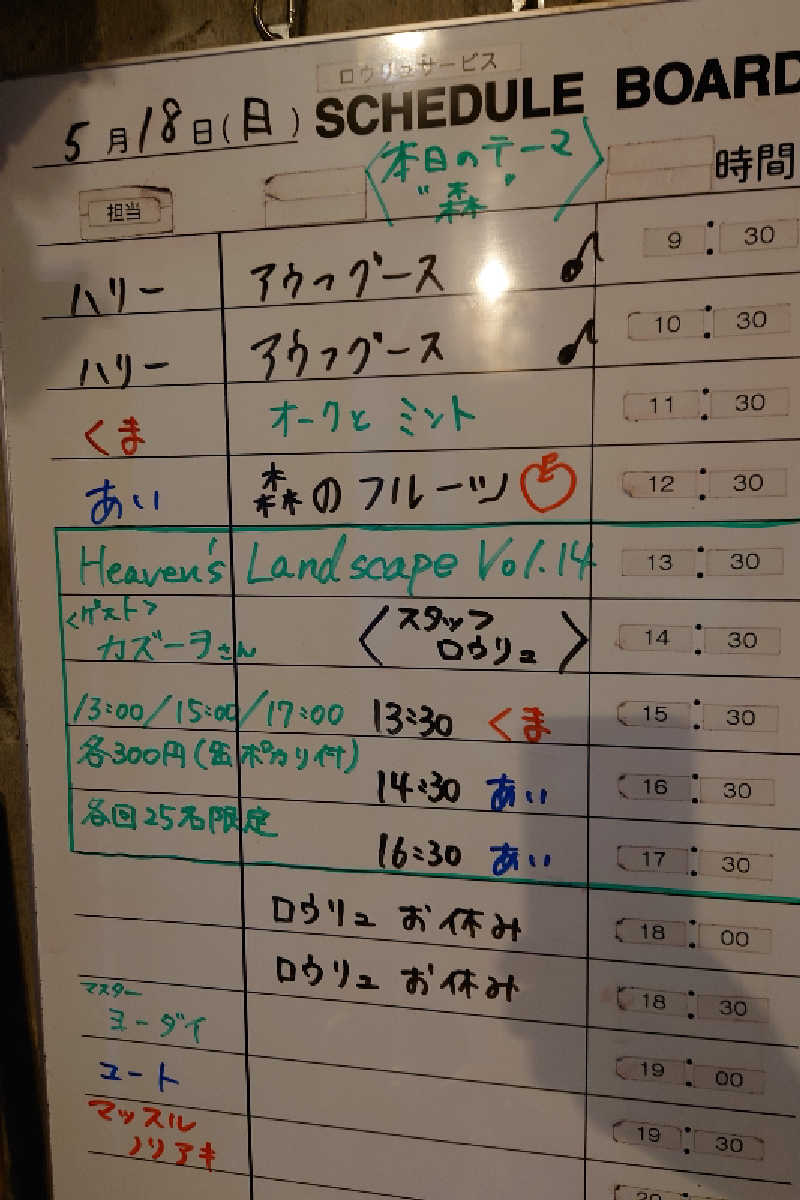 ロウリュサービス
5月18日(日) SCHEDULE BOARD
〈本日のテーマ
“森”〉
担当 時間
ハリー アウフグース ♪ 9:30
ハリー アウフグース ♪ 10:30
くま オークとミント 11:30
あい 森のフルーツ 12:30
Heaven's Landscape Vol.14 13:30
<ゲスト>
カズーヲさん
〈スタッフ
ロウリュ〉
14:30
13:00/15:00/17:00 13:30 くま 15:30
各300円(缶ポカリ付)
14:30 あい 16:30
各回25名限定
16:30 あい 17:30
ロウリュお休み 18:00
ロウリュお休み 18:30
マスター
ヨーダイ
19:00
ユート 19:30
マッスル
ノリアキ